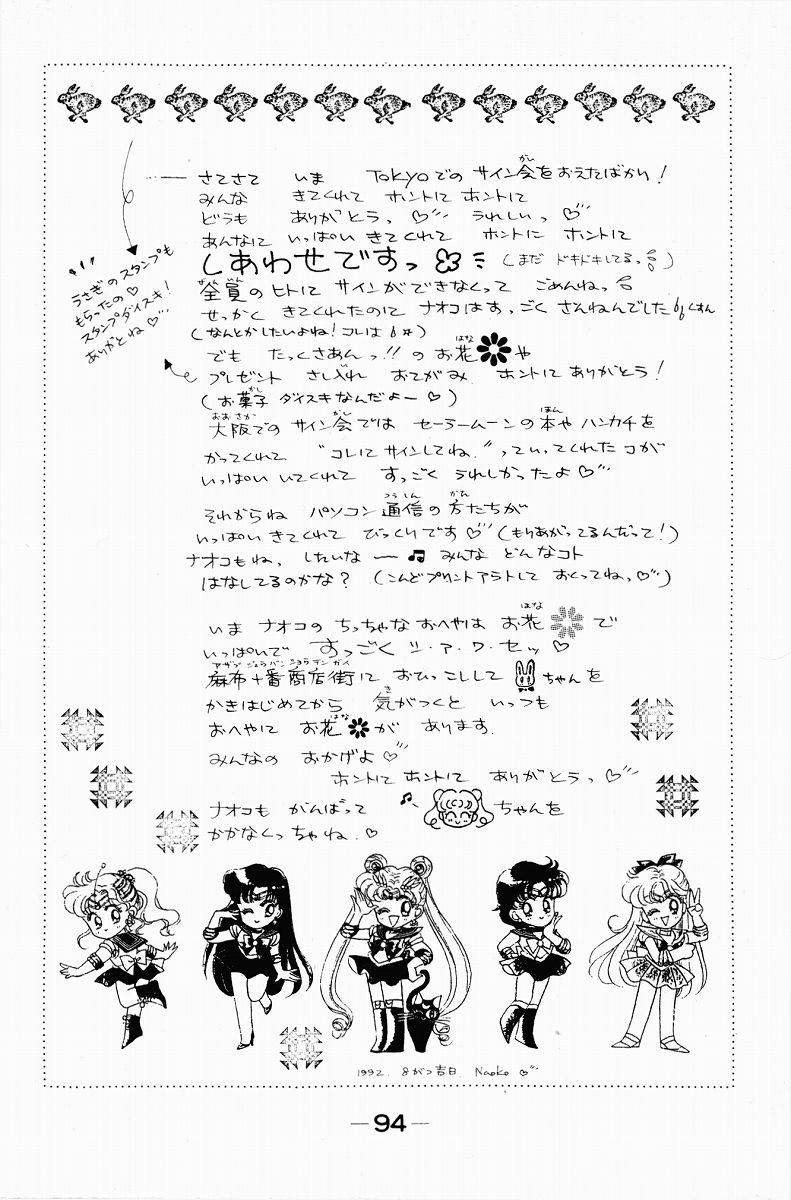 さてさて いま Tokyoでの サイン会をおえたばかり!
みんな きてくれて ホントに ホントに
どうも ありがとうっ♡ うれしいっ♡
あんなに いっぱい きてくれて ホントに ホントに
しあわせですっ (まだ ドキドキしてるっ)
全員のヒトに サインができなくって ごめんねっ
せっかく きてくれたのに ナオコはすっごく ざんねんでした くすん
(なんとかしたいよね!コレは)
でも たっくさあんっ!!の お花や
プレゼント さし入れ おてがみ ホントに ありがとう!
(お菓子 ダイスキなんだよー♡)
大阪での サイン会では セーラームーンの本や ハンカチを
かってくれて "コレにサインしてね." っていってくれたコが
いっぱい いてくれて すっごく うれしかったよ♡
それからね パソコン通信の方たちが
いっぱい きてくれて びっくりです♡(もりあがってるんだって!)
ナオコもね、 したいな ー ♫ みんな どんなコト
はなしてるのかな? (こんどプリントアウトして おくってねっ♡)
いま ナオコの ちっちゃな おへやは お花で
いっぱいで すっごく シ・ア・ワ・セッ♡
麻布十番商店街に おひっこしして ちゃんを
かきはじめてから 気がつくと いっつも
おへやに お花が あります.
みんなの おかげよ♡
ホントに ホントに ありがとうっ♡
ナオコも がんばって ♪ ちゃんを
かかなくっちゃね.♡
うさぎのスタンプも
もらったの♡
スタンプダイスキ!
ありがとね♡
1992. 8がつ吉日 Naoko♡
—94—